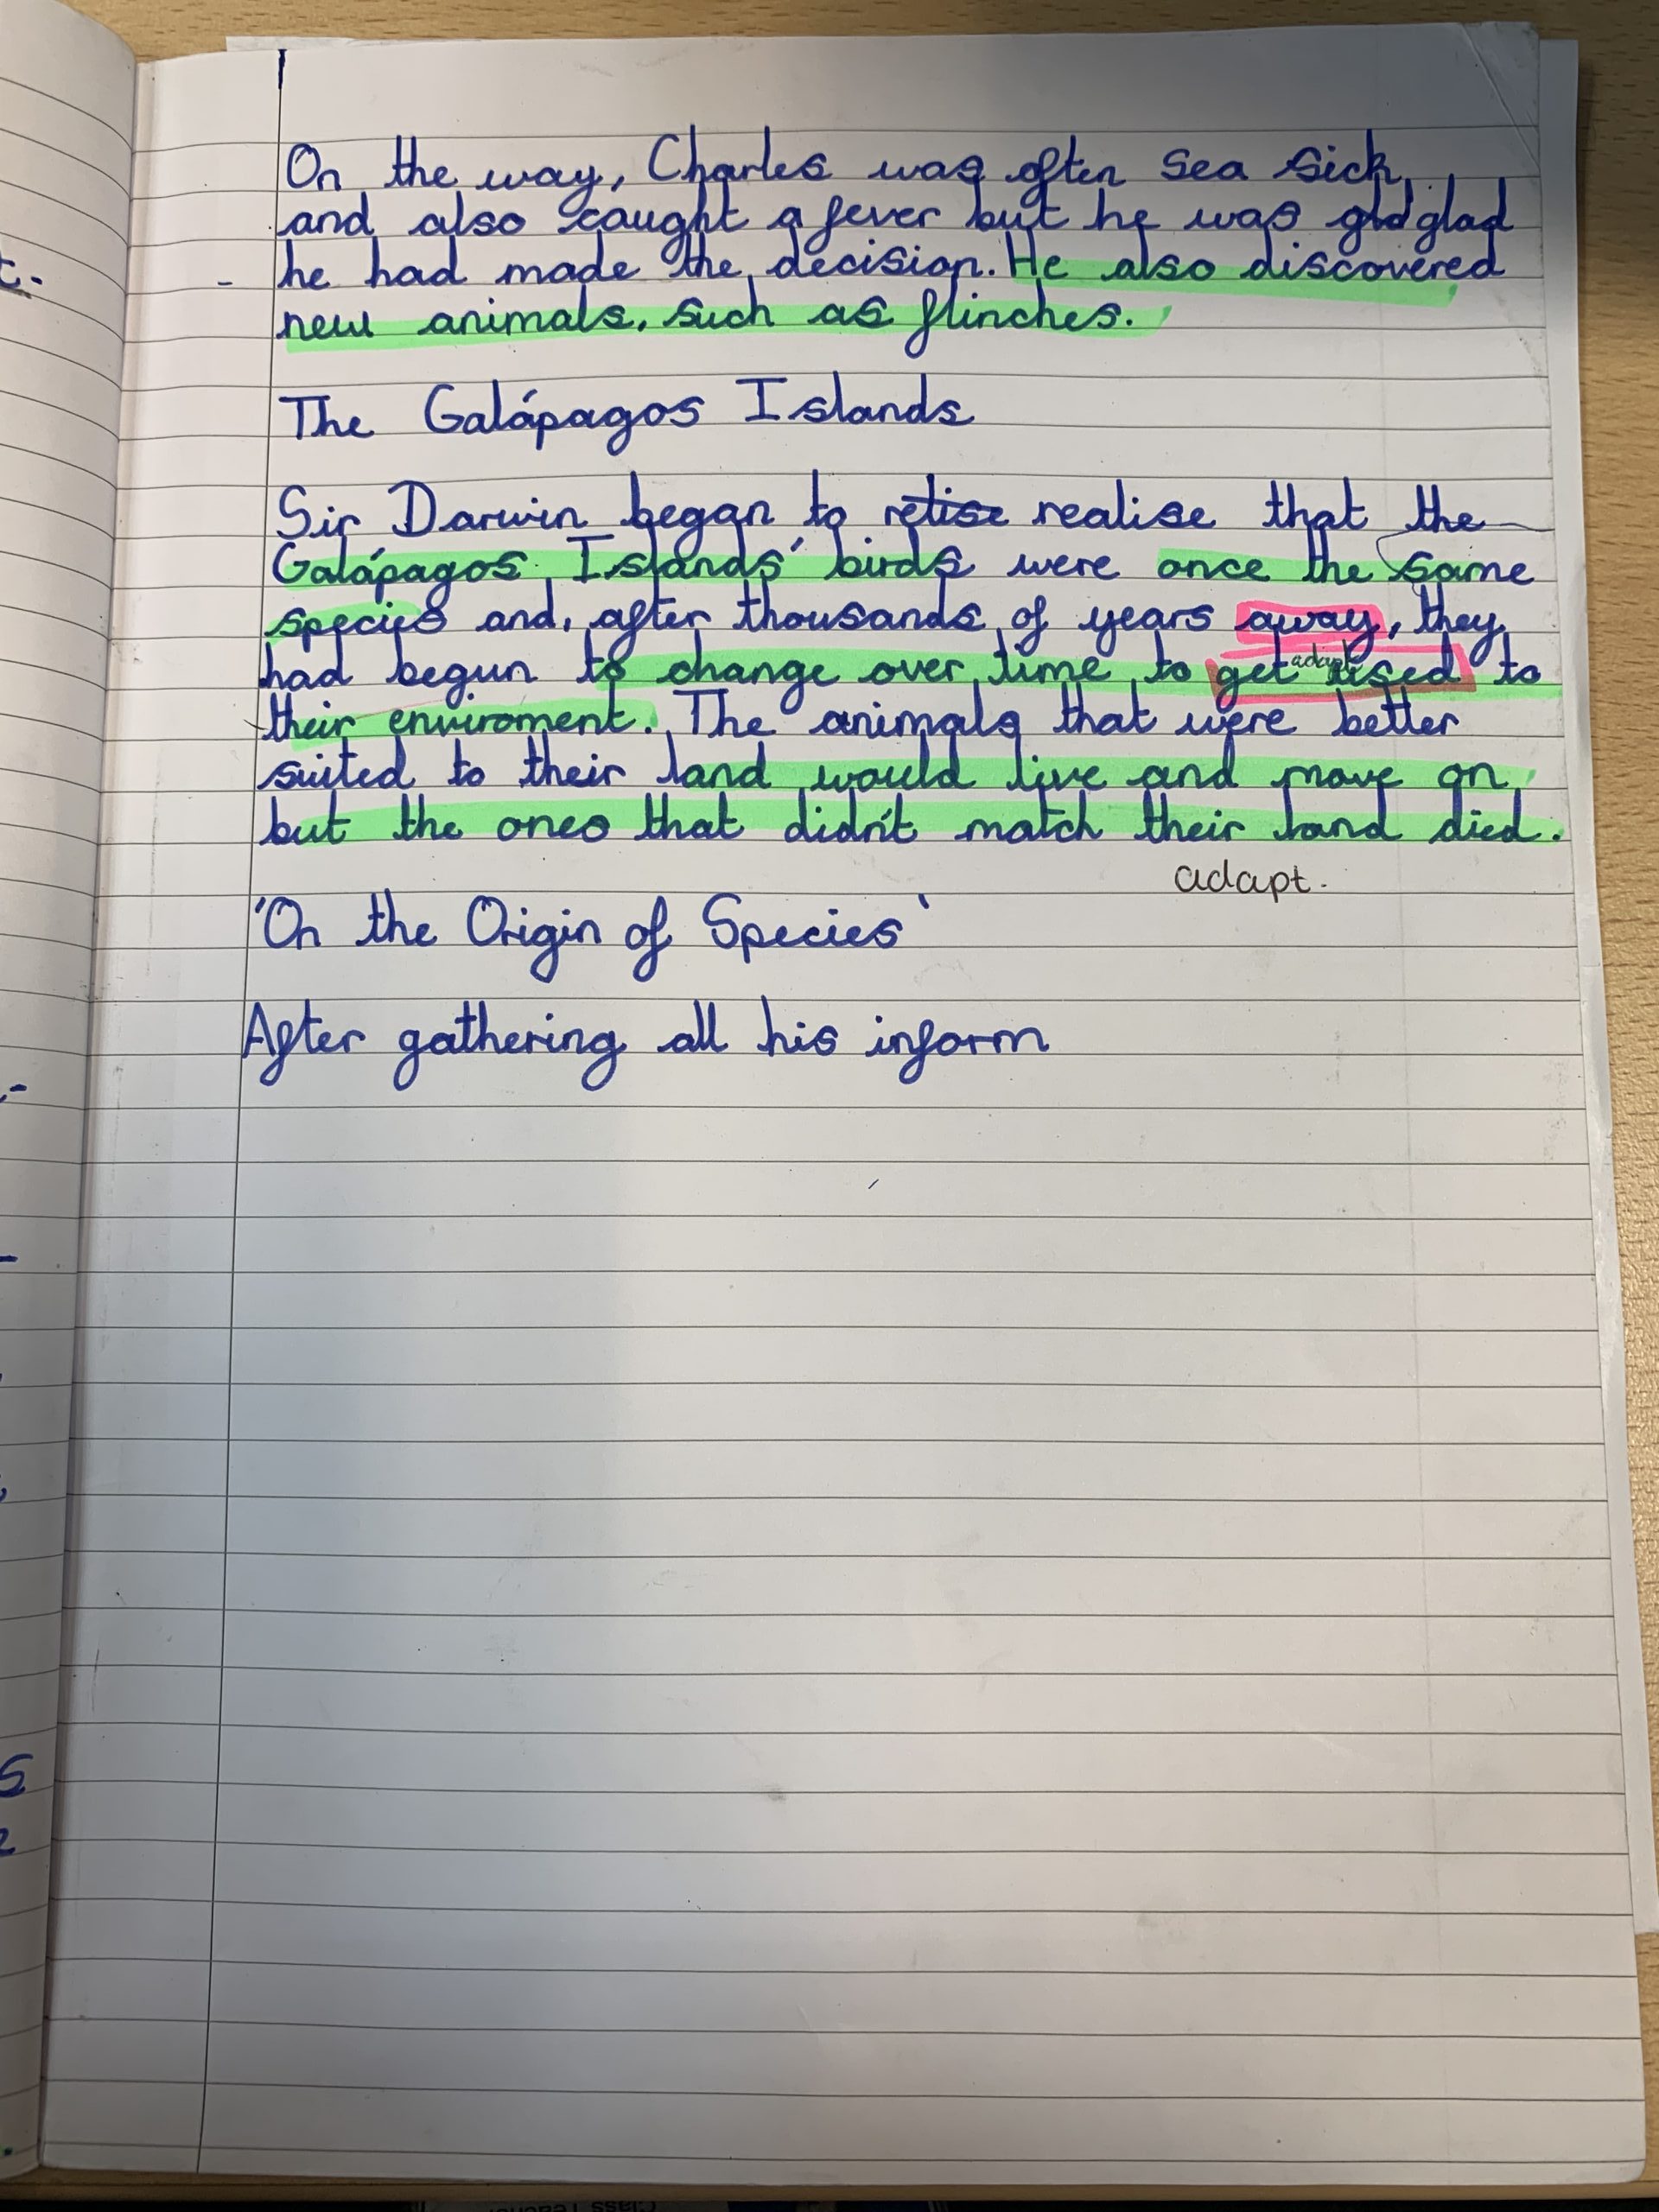 On the way, Charles was often sea sick,
and also caught a fever but he was gld glad
he had made the decision. He also discovered
new animals, such as flinches.
The Galápagos Islands
Sir Darwin began to retise realise that the
Galápagos Islands' birds were once the same
species and, after thousands of years away, they
had begun to change over time to get used to
adapt
their enviroment. The animals that were better
suited to their land would live and move on,
but the ones that didn't match their land died.
adapt.
'On the Origin of Species'
After gathering all his inform